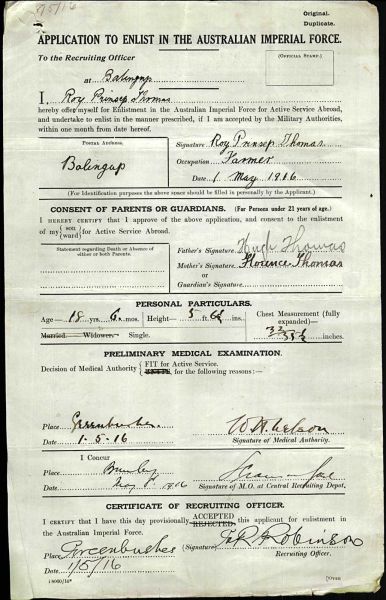 1/5/16
Original.
Duplicate.
APPLICATION TO ENLIST IN THE AUSTRALIAN IMPERIAL FORCE.
To the Recruiting Officer
(OFFICIAL STAMP.)
at Balingup
I, Roy Prinsep Thomas
hereby offer myself for Enlistment in the Australian Imperial Force for Active Service Abroad,
and undertake to enlist in the manner prescribed, if I am accepted by the Military Authorities,
within one month from date hereof.
POSTAL ADDRESS.
Balingup
Signature Roy Prinsep Thomas
Occupation Farmer
Date 1 May 1916
(For Identification purposes the above space should be filled in personally by the Applicant.)
CONSENT OF PARENTS OR GUARDIANS. (For Persons under 21 years of age.)
I HEREBY CERTIFY that I approve of the above application, and consent to the enlistment
of my {son ward} for Active Service Abroad.
Statement regarding Death or Absence of
either or both Parents.
Father's Signature Hugh Thomas
Mother's Signature Florence Thomas
or
Guardian's Signature
PERSONAL PARTICULARS.
Age— 18 yrs. 6 mos. Height— 5 ft. ins. Chest Measurement (fully
expanded)—
Married. Widower. Single. inches.
PRELIMINARY MEDICAL EXAMINATION.
Decision of Medical Authority { FIT for Active Service.
UNFIT for the following reasons :—
Place Greenbushes
Date 1-5-16
Signature of Medical Authority.
I Concur
Place Bunbury
Date May 1916
Signature of M.O. at Central Recruiting Depot.
CERTIFICATE OF RECRUITING OFFICER.
I CERTIFY that I have this day provisionally ACCEPTED
REJECTED, this applicant for enlistment in
the Australian Imperial Force.
Place Greenbushes (Signature) Robinson
Date 1/5/16 Recruiting Officer.